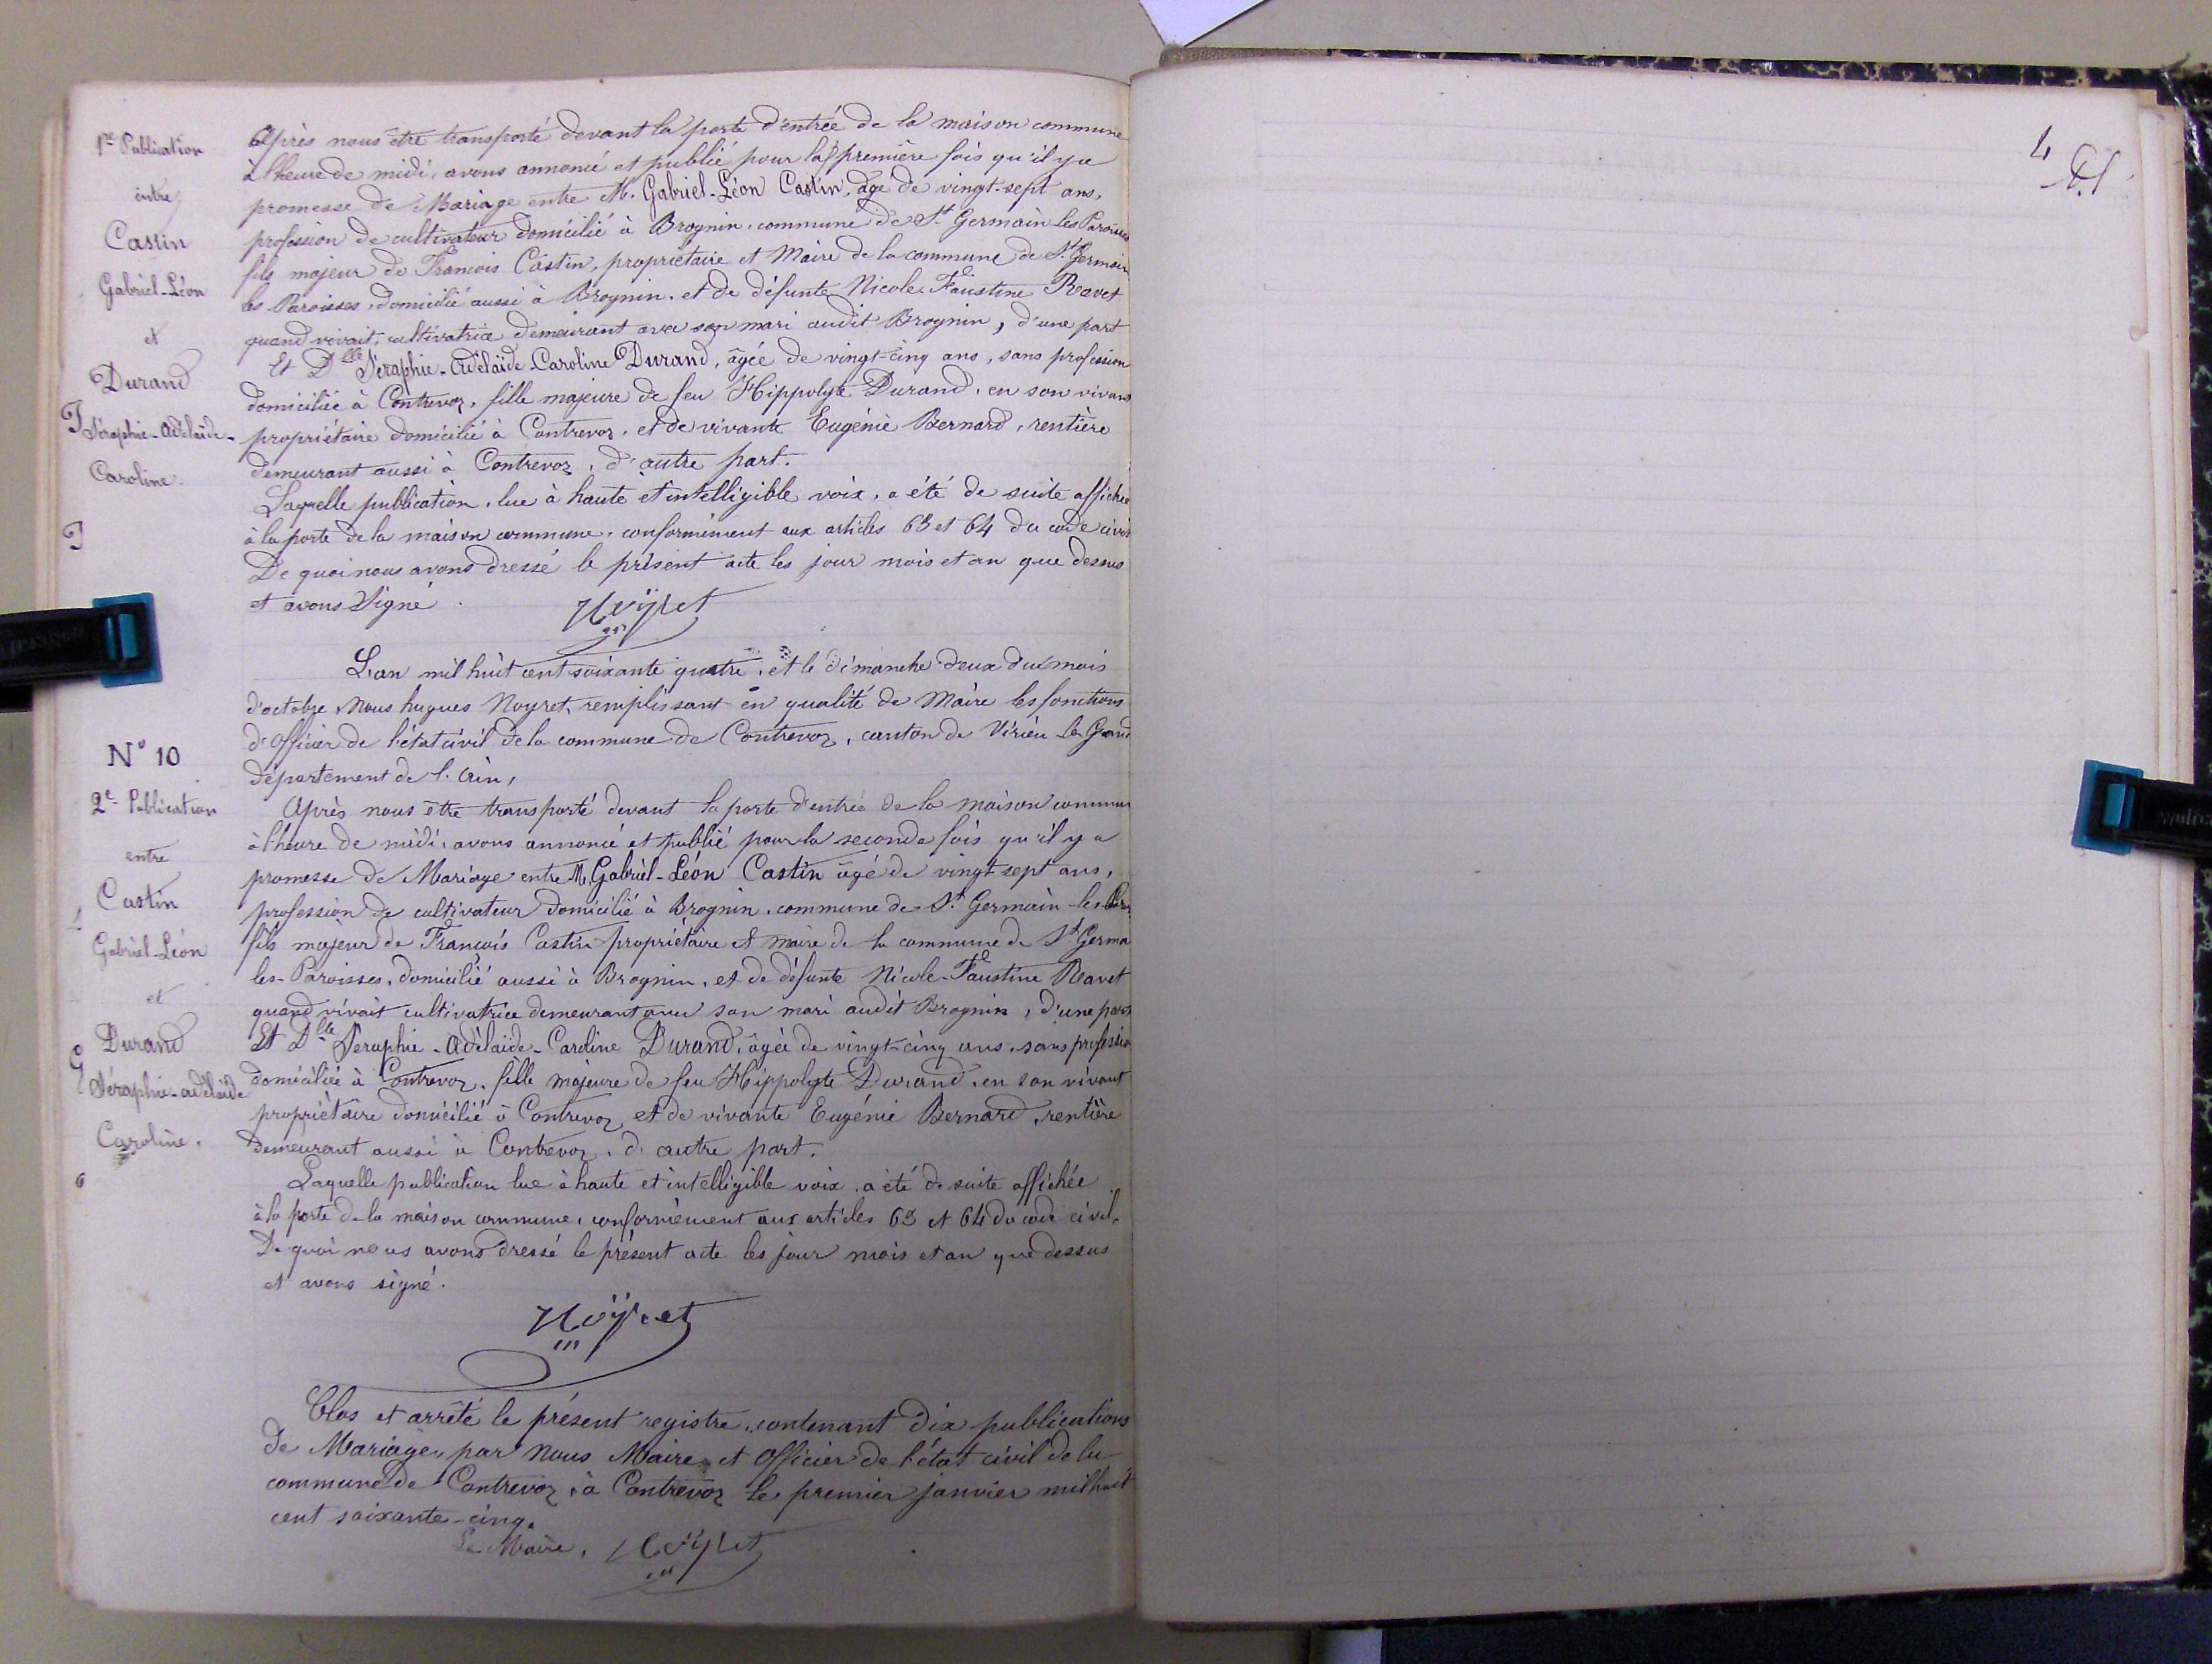 1re Publication
entre
Castin
Gabriel-Léon
et
Durand
Séraphie-Adélaïde-
Caroline.
Après nous être transporté devant la porte d'entrée de la maison commune
à l'heure de midi, avons annoncé et publié pour la première fois qu'il y a
promesse de Mariage entre M. Gabriel-Léon Castin, âgé de vingt-sept ans,
profession de cultivateur domicilié à Brognin, commune de St Germain les Paroisses
fils majeur de François Castin, propriétaire et Maire de la commune de St Germain
les Paroisses, domicilié aussi à Brognin, et de défunte Nicole Faustine Ravet
quand vivait, cultivatrice demeurant avec son mari audit Brognin, d'une part
Et Dlle Séraphie-Adélaïde-Caroline Durand, âgée de vingt-cinq ans, sans profession
domiciliée à Contrevoz, fille majeure de feu Hippolyte Durand, en son vivant
propriétaire domicilié à Contrevoz, et de vivante Eugénie Bernard, rentière
demeurant aussi à Contrevoz, d'autre part.
Laquelle publication, lue à haute et intelligible voix, a été de suite affichée
à la porte de la maison commune, conformément aux articles 63 et 64 du code civil
De quoi nous avons dressé le présent acte les jour mois et an que dessus
et avons signé.
Noyret
L'an mil huit cent soixante quatre, et le dimanche deux du mois
d'octobre, Nous hugues Noyret, remplissant en qualité de Maire les fonctions
d'officier de l'état civil de la commune de Contrevoz, canton de Virieu le Grand
département de l'Ain,
N° 10
2e Publication
entre
Castin
Gabriel-Léon
et
Durand
Séraphie-adélaïde
Caroline.
Après nous être transporté devant la porte d'entrée de la maison commun
à l'heure de midi, avons annoncé et publié pour la seconde fois qu'il y a
promesse de Mariage entre M. Gabriel-Léon Castin âgé de vingt sept ans,
profession de cultivateur domicilié à Brognin, commune de St Germain-les-Paroi
fils majeur de François Castin propriétaire et maire de la commune de St Germa
les-Paroisses, domicilié aussi à Brognin, et de défunte Nicole-Faustine Ravet
quand vivait cultivatrice demeurant avec son mari audit Brognin, d'une part
Et Dlle Séraphie-Adélaïde-Caroline Durand, âgée de vingt-cinq ans, sans profession
domiciliée à Contrevoz, fille majeure de feu Hippolyte Durand, en son vivant
propriétaire domicilié à Contrevoz et de vivante Eugénie Bernard, rentière
demeurant aussi à Contrevoz, d'autre part.
Laquelle publication lue à haute et intelligible voix, a été de suite affichée
à la porte de la maison commune, conformément aux articles 63 et 64 du code civil.
De quoi nous avons dressé le présent acte les jour mois et an que dessus
et avons signé.
Noyret
Clos et arrêté le présent registre, contenant dix publications
de Mariage, par Nous Maire et Officier de l'état civil de la
commune de Contrevoz, à Contrevoz le premier janvier mil huit
cent soixante-cinq.
Le Maire, Noyret
4